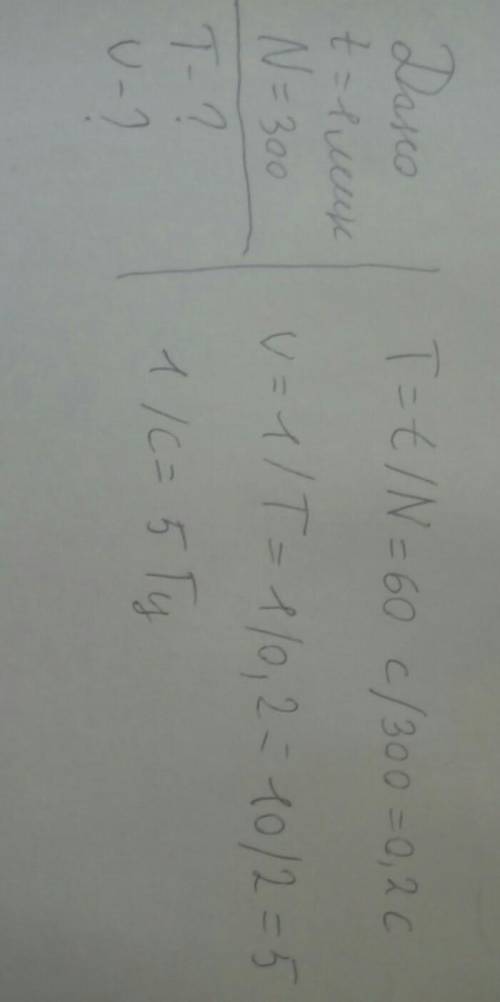 Дано
t = 1 мин
N = 300
T - ?
ν - ?
T = t/N = 60 с/300 = 0,2 с
ν = 1/T = 1/0,2 = 10/2 = 5
1/с = 5 Гц